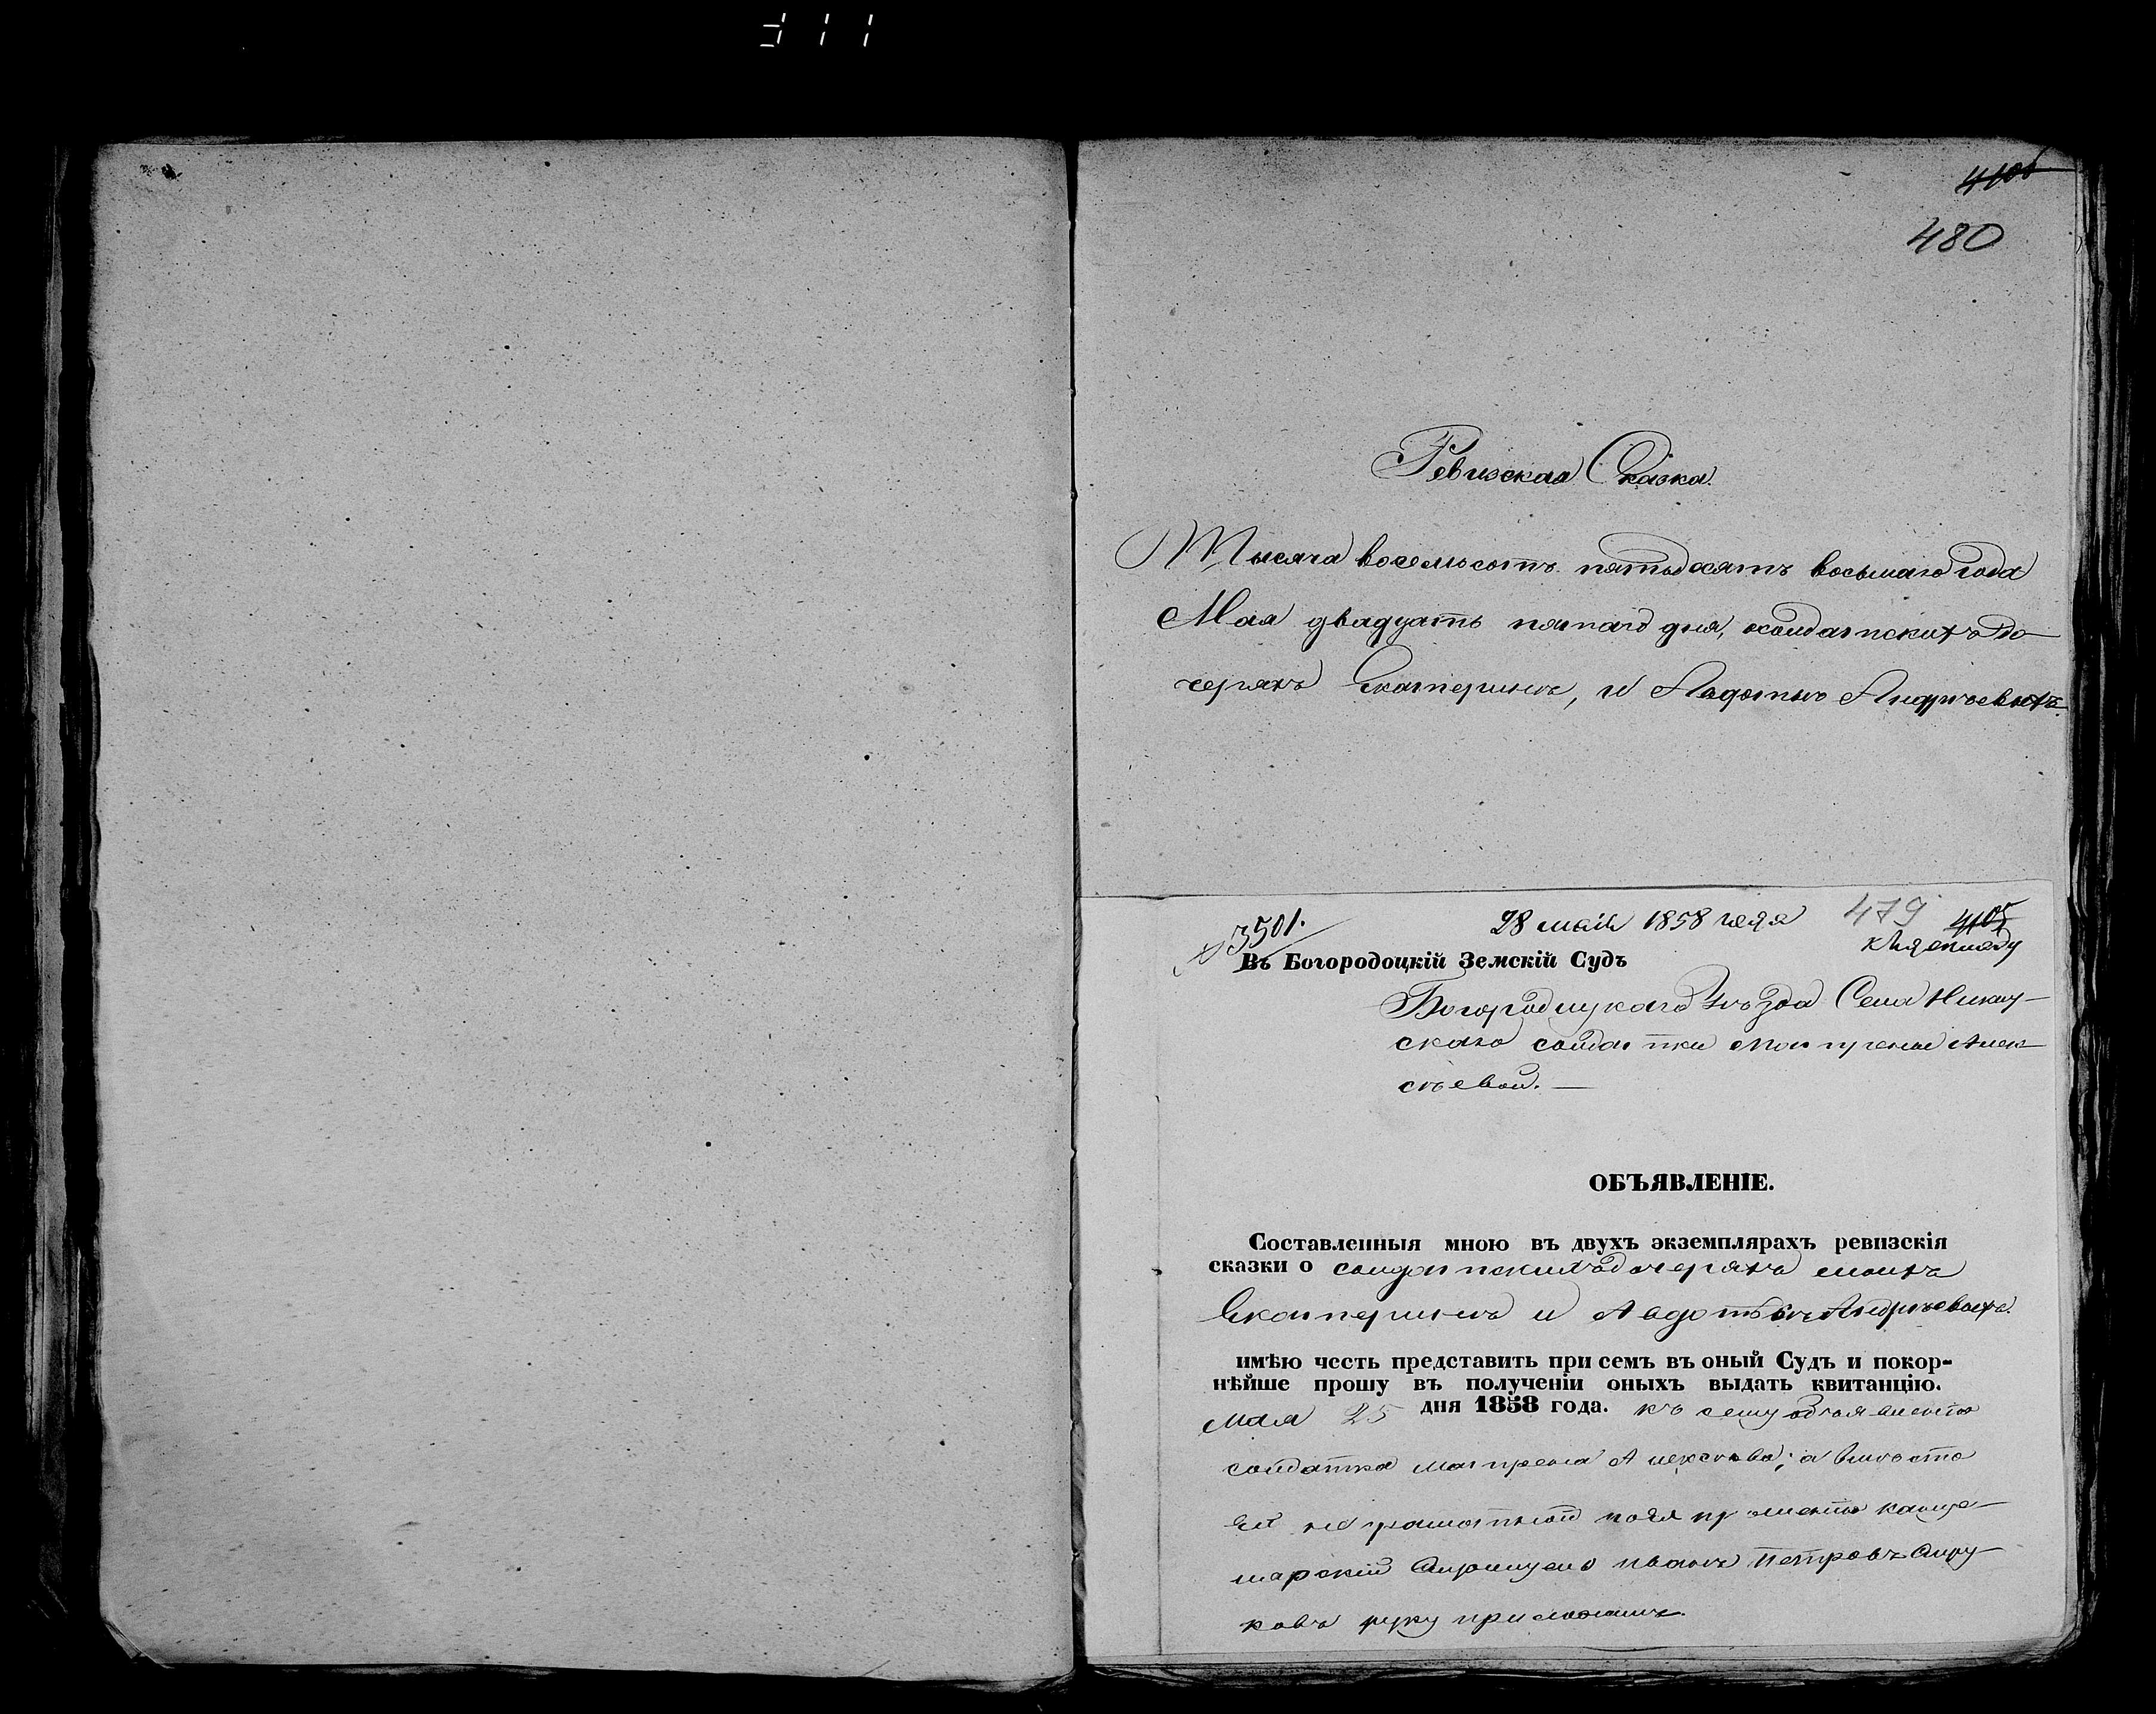 311
4106
480
Ревизская Сказка.
Тысяча восемьсотъ пятьдесятъ восьмаго года
Мая двадцать пятаго дня, солдатскихъ до-
черяхъ Екатеринѣ, и Авдотьѣ Андрѣевыхъ.
3501.
28 мая 1858 года
479
4105
Въ Богородоцкій Земскій Судъ
Богородицкаго Уѣзда Села
скаго солдатки Матрены Алек-
сѣевой.—
ОБЪЯВЛЕНІЕ.
Составленныя мною въ двухъ экземплярахъ ревизскія
сказки о солдатскихъ дочеряхъ моихъ
Екатеринѣ и Авдотьѣ Андрѣевыхъ.
имѣю честь представить при семъ въ оный Судъ и покор-
нѣйше прошу въ полученіи оныхъ выдать квитанцію.
Мая 25 дня 1858 года. Къ сему объявленію
солдатка Матрена Алексѣева; а вмѣсто
ей не грамотной по ея прошенію канце-
лярскій Иванъ Петровъ
руку приложилъ.